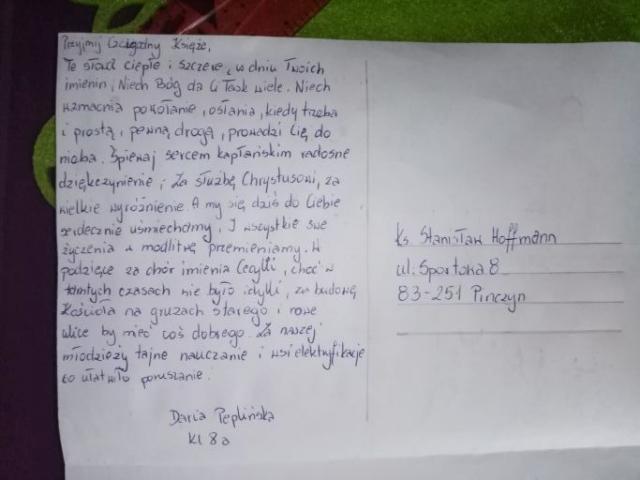 Przyjmij Czcigodny Księże,
Te słowa ciepłe i szczere, w dniu Twoich
imienin, Niech Bóg da Ci Łask wiele. Niech
wzmacnia powołanie, osłania, kiedy trzeba
i prostą, pewną drogą, prowadzi Cię do
nieba. Śpiewaj sercem kapłańskim radosne
dziękczynienie, Za służbę Chrystusowi, za
wielkie wyróżnienie. A my się dziś do Ciebie
serdecznie uśmiechamy, I wszystkie swe
życzenia w modlitwę przemieniamy. W
podzięce za chór imienia Cecylii, choć w
tamtych czasach nie było idylli, za budowę
Kościoła na gruzach starego i nowe
ulice by mieć coś dobrego. Za naszej
młodzieży tajne nauczanie i wsi elektryfikacje
co ułatwiło poruszanie.
Daria Peplińska
Kl 8a
Ks. Stanisław Hoffmann
ul. Sportowa 8
83-251 Pinczyn